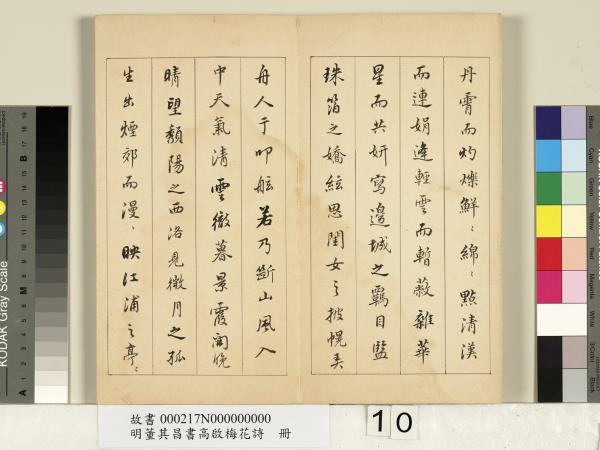 丹霄而灼爍鮮〻綿〻點清漢
而連娟逢輕雲而暫蔽雜華
星而共妍寫邊城之羈目監
珠箔之嬌絃思閨女之披幌美
舟人于叩舷若乃斷山風入
中天氣清雲徹暮景霞開晚
晴望頹陽之西洛見微月之孤
生出煙郊而漫〻映江浦之亭〻
故書 000217N000000000
明董其昌書高啟梅花詩 冊
10
KODAK Gray Scale
A 1 2 3 4 5 6 M 8 9 10 11 12 13 14 15 B 17 18 19
Blue
Cyan
Green
Yellow
Red
Magenta
White
3/Color
Black